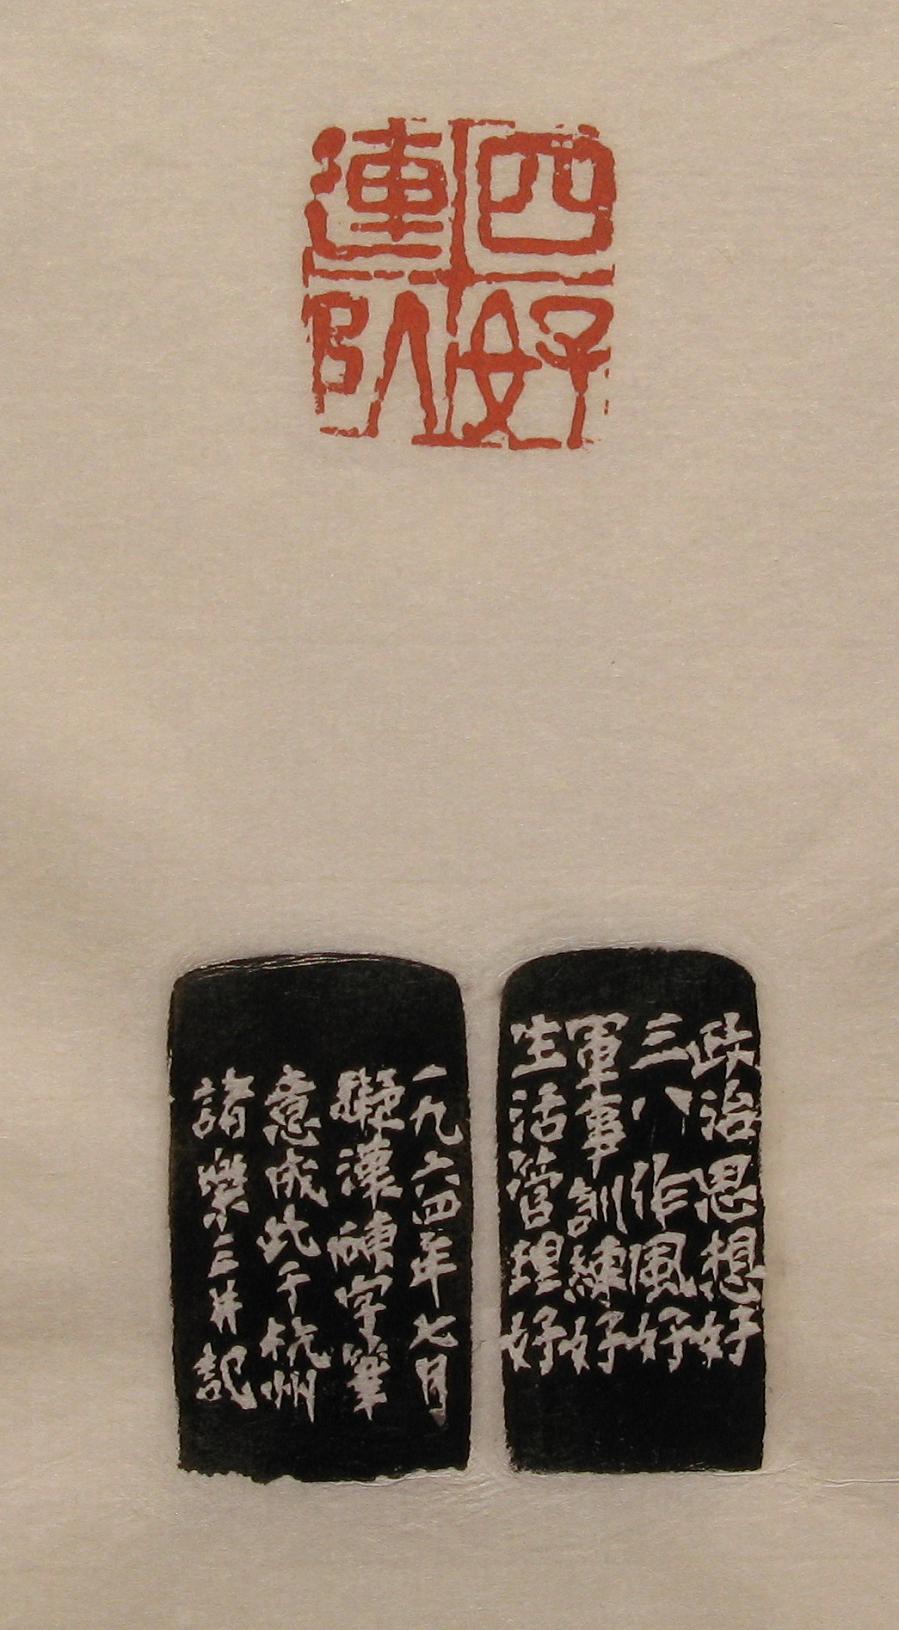 四好
連隊
政治思想好
三八作風好
軍事訓練好
生活管理好
一九六四年七月
擬漢磚字筆
意成此于杭州
諸樂三并記